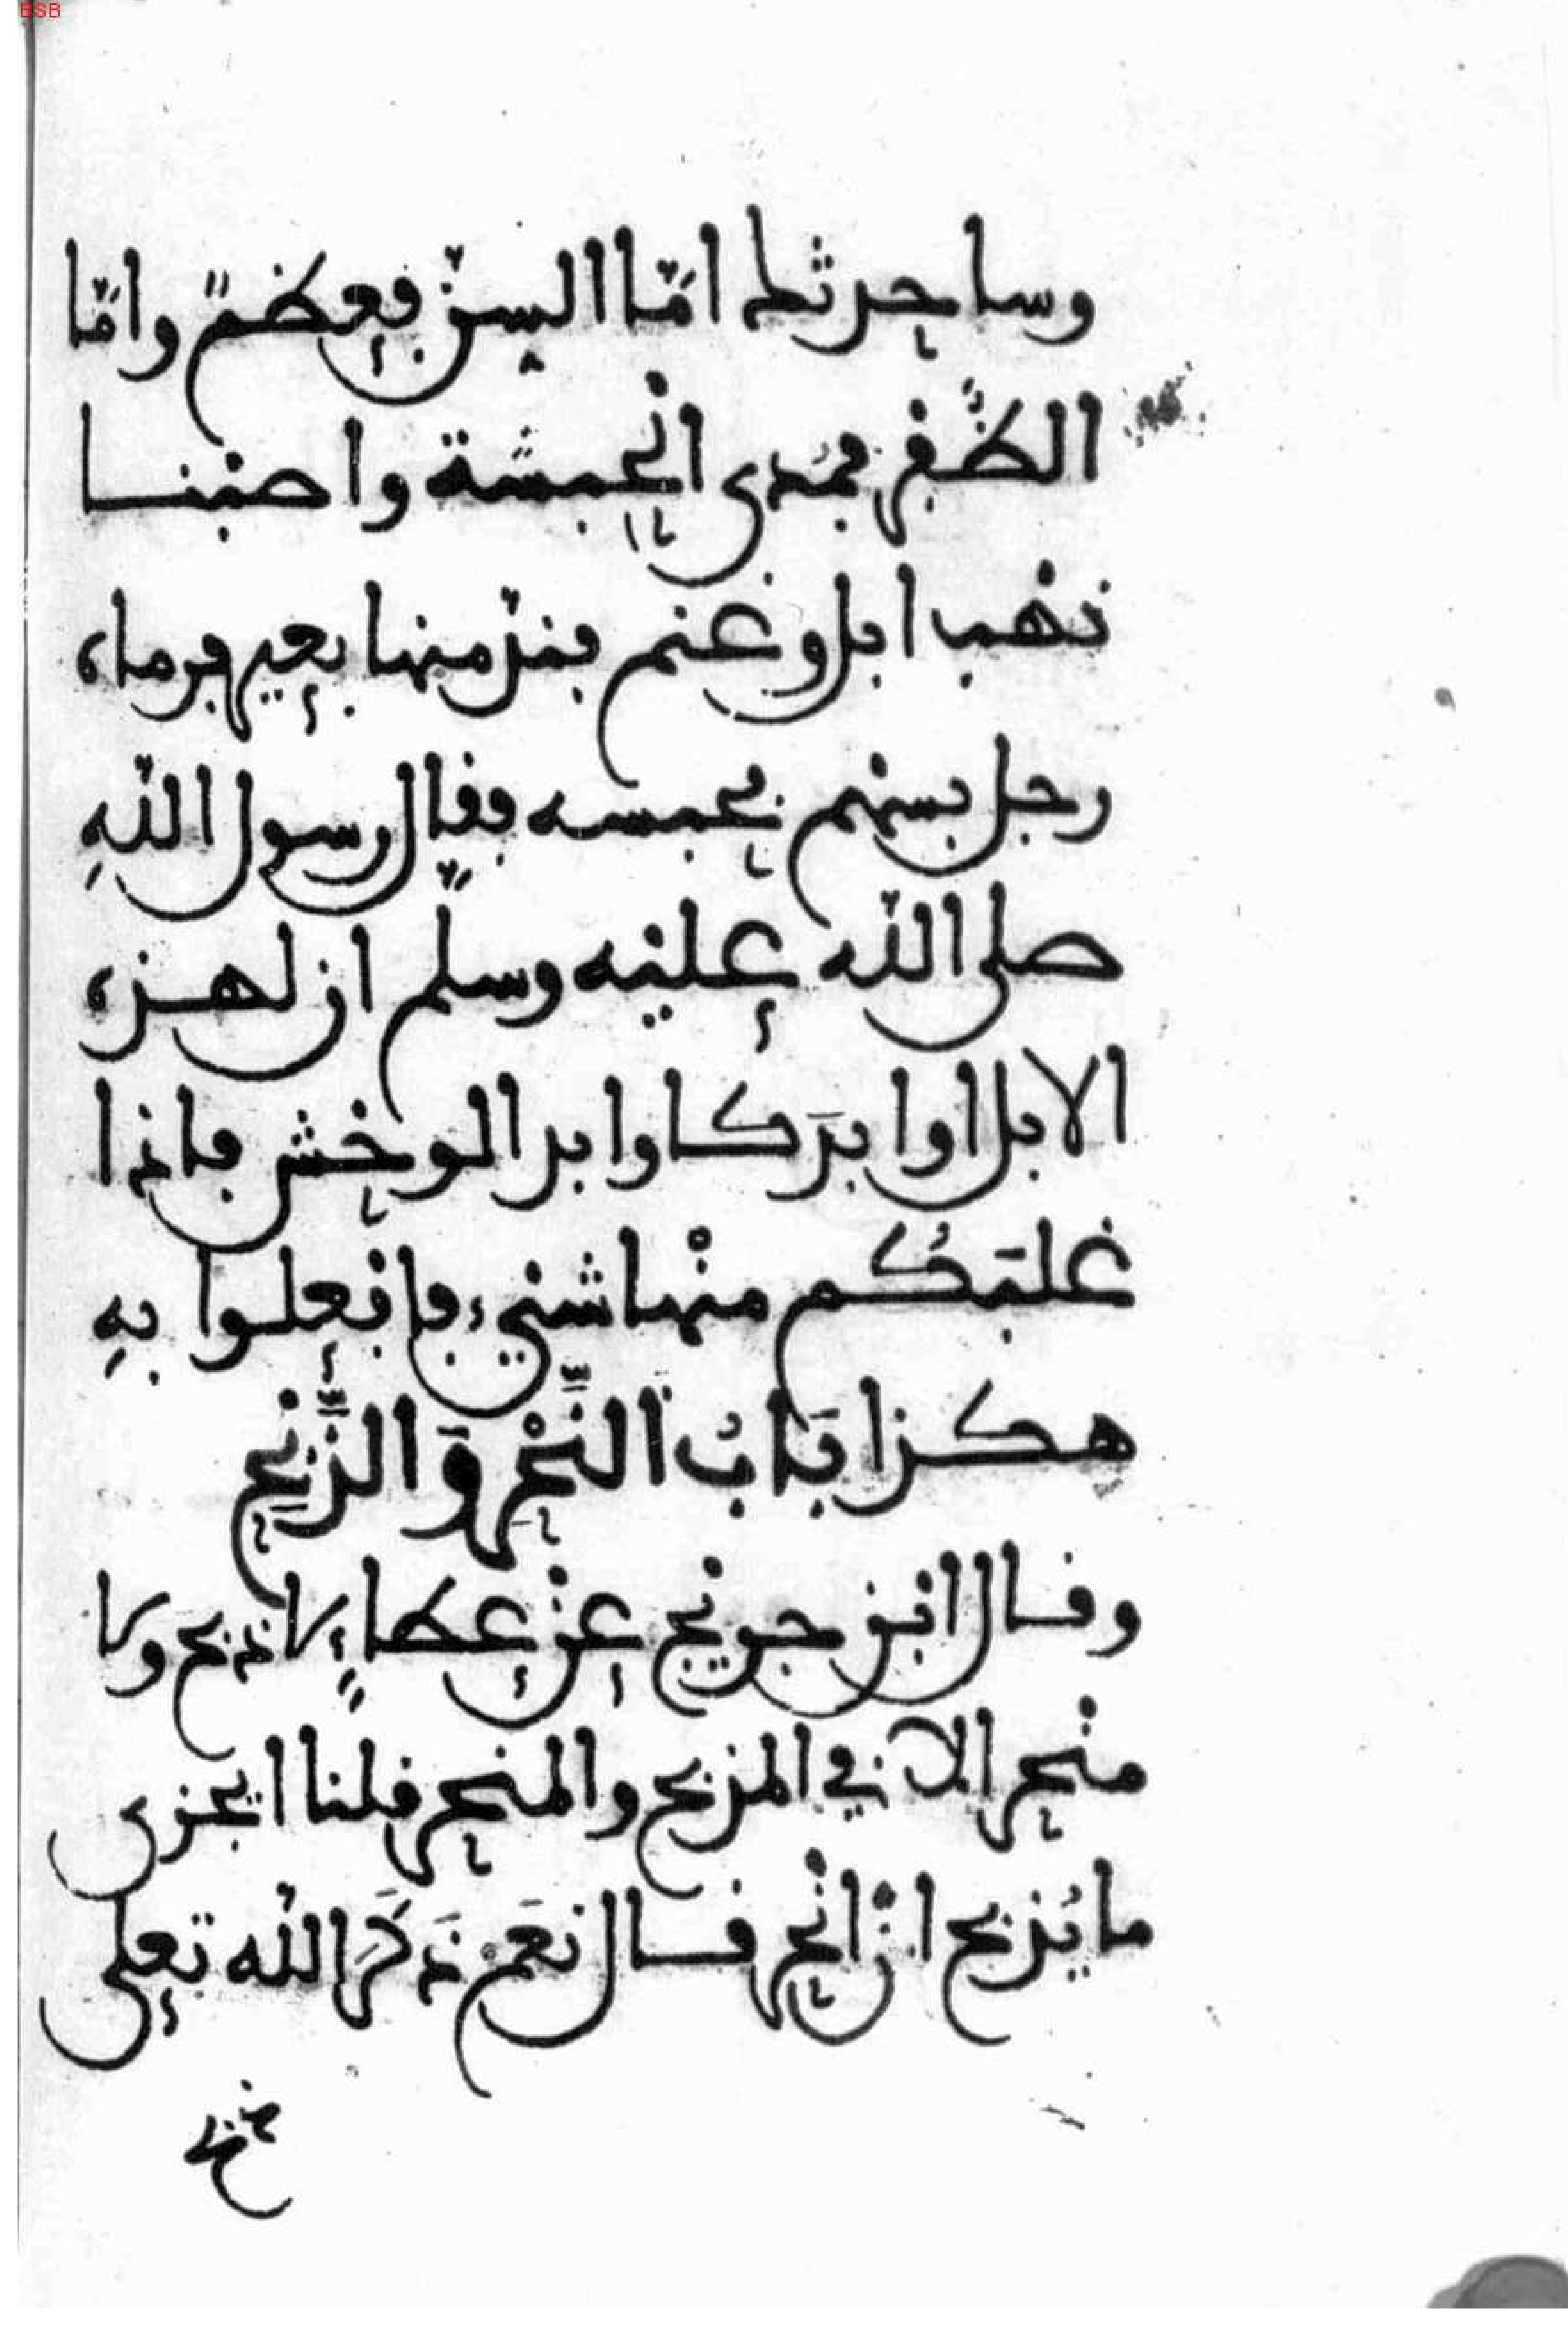 BSB
وساحدثك امّا السنّ فعظمٌ وامّا
الظُّفر فمُدى الحبشة واصبنا
نهب ابل وغنم فندّ منها بعير فرماه
رجل بسهم فحبسه فقال رسول اللّهِ
صلى اللّه عليه وسلّم ان لهذه
الابل اوابدَ كاوابد الوحش فاذا
غلبَكُم منْها شيء فافعلوا بهِ
هكذا بَابُ النَّحْرِ وَالذَّبْحِ
وقال ابن جريج عن عطاءٍ لا ذبح ولا
منْحر الا في المذبح والمنحر قلنا ايجزى
ما يُذبح ان انْحر قال نعَم ذَكَرَ الله تعلى
ذبح